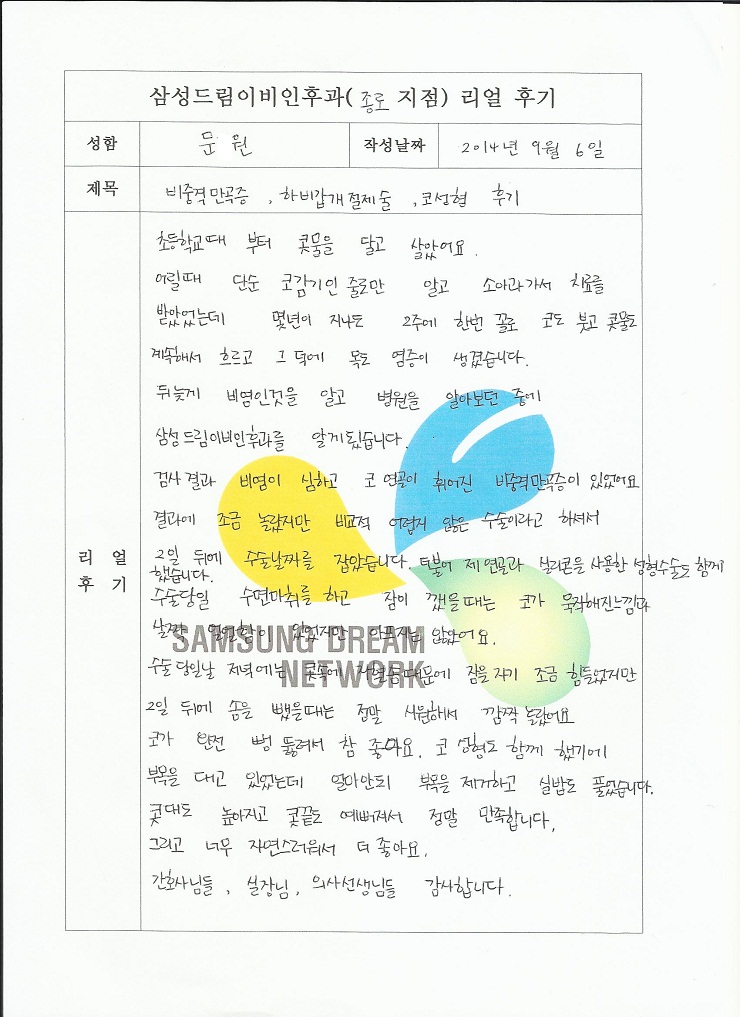 삼성드림이비인후과( 종로 지점) 리얼 후기
성함 문 원 작성날짜 2014년 9월 6일
제목 비중격만곡증 , 하비갑개절제술 , 코성형 후기
리 얼
후 기
초등학교때 부터 콧물을 달고 살았어요.
어릴때 단순 코감기인 줄로만 알고 소아과가서 치료를
받았었는데 몇년이 지나도 2주에 한번 꼴로 코도 붓고 콧물도
계속해서 흐르고 그 덕에 목도 염증이 생겼습니다.
뒤늦게 비염인것을 알고 병원을 알아보던 중에
삼성드림이비인후과를 알게됬습니다.
검사결과 비염이 심하고 코 연골이 휘어진 비중격만곡증이 있었어요
결과에 조금 놀랐지만 비교적 어렵지 않은 수술이라고 하셔서
2일 뒤에 수술날짜를 잡았습니다. 더불어 제 연골과 실리콘을 사용한 성형수술도 함께
했습니다.
수술당일 수면마취를 하고 잠이 깼을때는 코가 묵직해진느낌과
살짝 얼얼함이 있었지만 아프지는 않았어요.
수술 당일날 저녁에는 콧속에 지혈솜때문에 잠을 자기 조금 힘들었지만
2일 뒤에 솜을 뺐을때는 정말 시원해서 깜짝 놀랐어요
코가 완전 뻥 뚫려서 참 좋아요. 코 성형도 함께 했기에
부목을 대고 있었는데 얼마안되 부목을 제거하고 실밥도 풀었습니다.
콧대도 높아지고 콧끝도 예뻐져서 정말 만족합니다.
그리고 너무 자연스러워서 더 좋아요.
간호사님들 , 실장님, 의사선생님들 감사합니다.
SAMSUNG DREAM
NETWORK